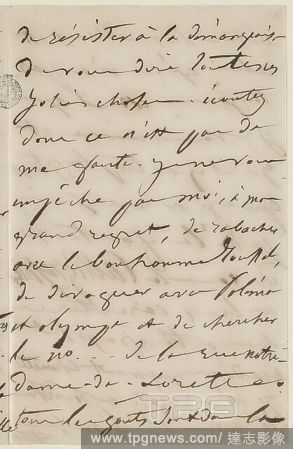 de résister à la démangeaison
de vous dire toutes ces
jolies choses. écoutez
donc ce n'est pas de
ma faute. je ne vous
empêche pas moi, à mon
grand regret, de rabacher
avec le bonhomme
de divaguer avec
et olympe et de chercher
le no... de la rue notre
dame-de-Lorette.
tous les goûts sont dans la
TPG
www.tpgnews.com / 達志影像